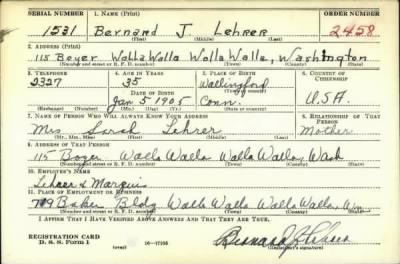 SERIAL NUMBER 1. NAME (Print) ORDER NUMBER
1531 Bernard J. Lehrer 2458
(First) (Middle) (Last)
2. ADDRESS (Print)
115 Boyer Walla Walla Walla Walla, Washington
(Number and street or R. F. D. number) (Town) (County) (State)
3. TELEPHONE 4. AGE IN YEARS 5. PLACE OF BIRTH 6. COUNTRY OF CITIZENSHIP
2327 35 Wallingford
DATE OF BIRTH (Town or county)
Jan 5 1905 Conn. U.S.A.
(Exchange) (Number) (Mo.) (Day) (Yr.) (State or country)
7. NAME OF PERSON WHO WILL ALWAYS KNOW YOUR ADDRESS 8. RELATIONSHIP OF THAT PERSON
Mrs Sarah Lehrer Mother
(Mr., Mrs., Miss) (First) (Middle) (Last)
9. ADDRESS OF THAT PERSON
115 Boyer Walla Walla Walla Walla, Wash
(Number and street or R. F. D. number) (Town) (County) (State)
10. EMPLOYER'S NAME
Lehrer & Marquis
11. PLACE OF EMPLOYMENT OR BUSINESS
Baker Bldg Walla Walla Walla Walla, Wn
(Number and street or R. F. D. number) (Town) (County) (State)
I AFFIRM THAT I HAVE VERIFIED ABOVE ANSWERS AND THAT THEY ARE TRUE.
REGISTRATION CARD
D. S. S. Form 1 (over) 16—17105 Bernard J Lehrer
(Registrant's signature)